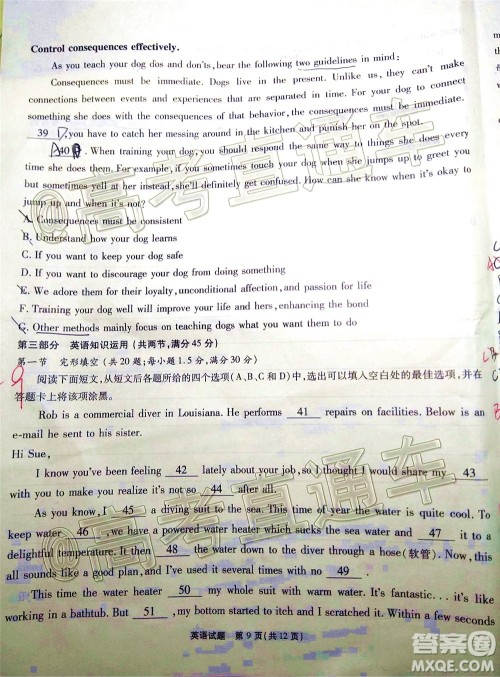 Control consequences effectively.
As you teach your dog dos and don'ts, bear the following two guidelines in mind:
Consequences must be immediate. Dogs live in the present. Unlike us, they can't make
connections between events and experiences that are separated in time. For your dog to connect
something she does with the consequences of that behavior, the consequences must be immediate.
39 D, you have to catch her messing around in the kitchen and punish her on the spot.
A 40 . When training your dog, you should respond the same way to things she does every
time she does them. For example, if you sometimes touch your dog when she jumps up to greet you
but sometimes yell at her instead, she'll definitely get confused. How can she know when it's okay to
jump up and when it's not?
A. Consequences must be consistent
B. Understand how your dog learns
C. If you want to keep your dog safe
D. If you want to discourage your dog from doing something
E. We adore them for their loyalty, unconditional affection, and passion for life
F. Training your dog well will improve your life and hers, enhancing the bond
G. Other methods mainly focus on teaching dogs what you want them to do
第三部分 英语知识运用 (共两节,满分45分)
第一节 完形填空 (共20题;每小题1.5分,满分30分)
9
阅读下面短文,从短文后各题所给的四个选项(A、B、C和D)中,选出可以填入空白处的最佳选项,并在
答题卡上将该项涂黑。
Rob is a commercial diver in Louisiana. He performs 41 repairs on facilities. Below is an
e-mail he sent to his sister.
Hi Sue,
I know you've been feeling 42 lately about your job, so I thought I would share my 43
with you to make you realize it's not so 44 after all.
As you know, I 45 a diving suit to the sea. This time of year the water is quite cool. To
keep water 46 , we have a powered water heater which sucks the sea water and 47 it to a
delightful temperature. It then 48 the water down to the diver through a hose (软管). Now, this
all sounds like a good plan, and I've used it several times with no 49 .
This time the water heater 50 my whole suit with warm water. It's fantastic...it's like
working in a bathtub. But 51 , my bottom started to itch and I scratched it. Within a few seconds
英语试题 第9页(共12页)
@高考直通车
@高考直通车
答案圈
MXQE.COM